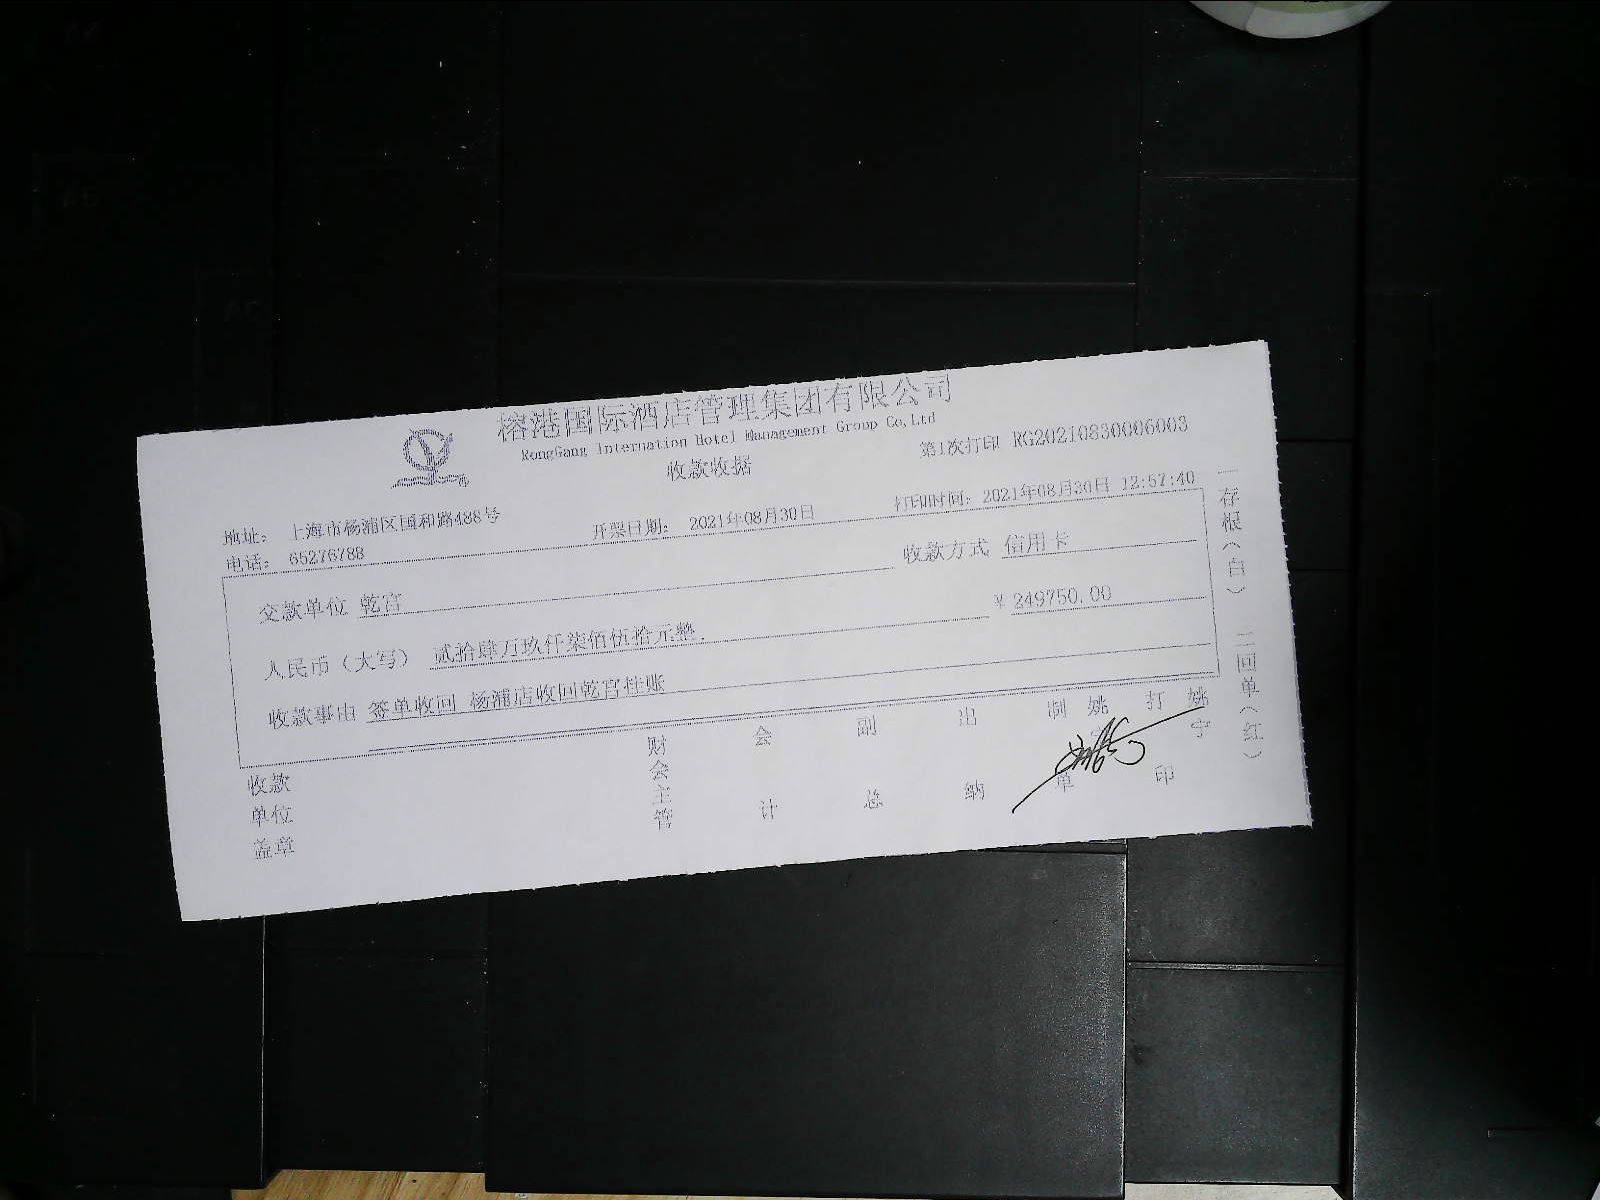 榕港国际酒店管理集团有限公司
RongGang Internation Hotel Management Group Co,Ltd
收款收据
第1次打印 RG20210830006003
地址： 上海市杨浦区国和路488号
电话： 65276788
开票日期： 2021年08月30日
打印时间： 2021年08月30日 12:57:40
交款单位 乾宫
收款方式 信用卡
人民币（大写） 贰拾肆万玖仟柒佰伍拾元整.
￥ 249750.00
收款事由 签单收回 杨浦店收回乾宫挂账
收款单位盖章
财会主管
会计
副总
出纳
制单 姚宁
打印 姚宁
一存根（白） 二回单（红）
A5